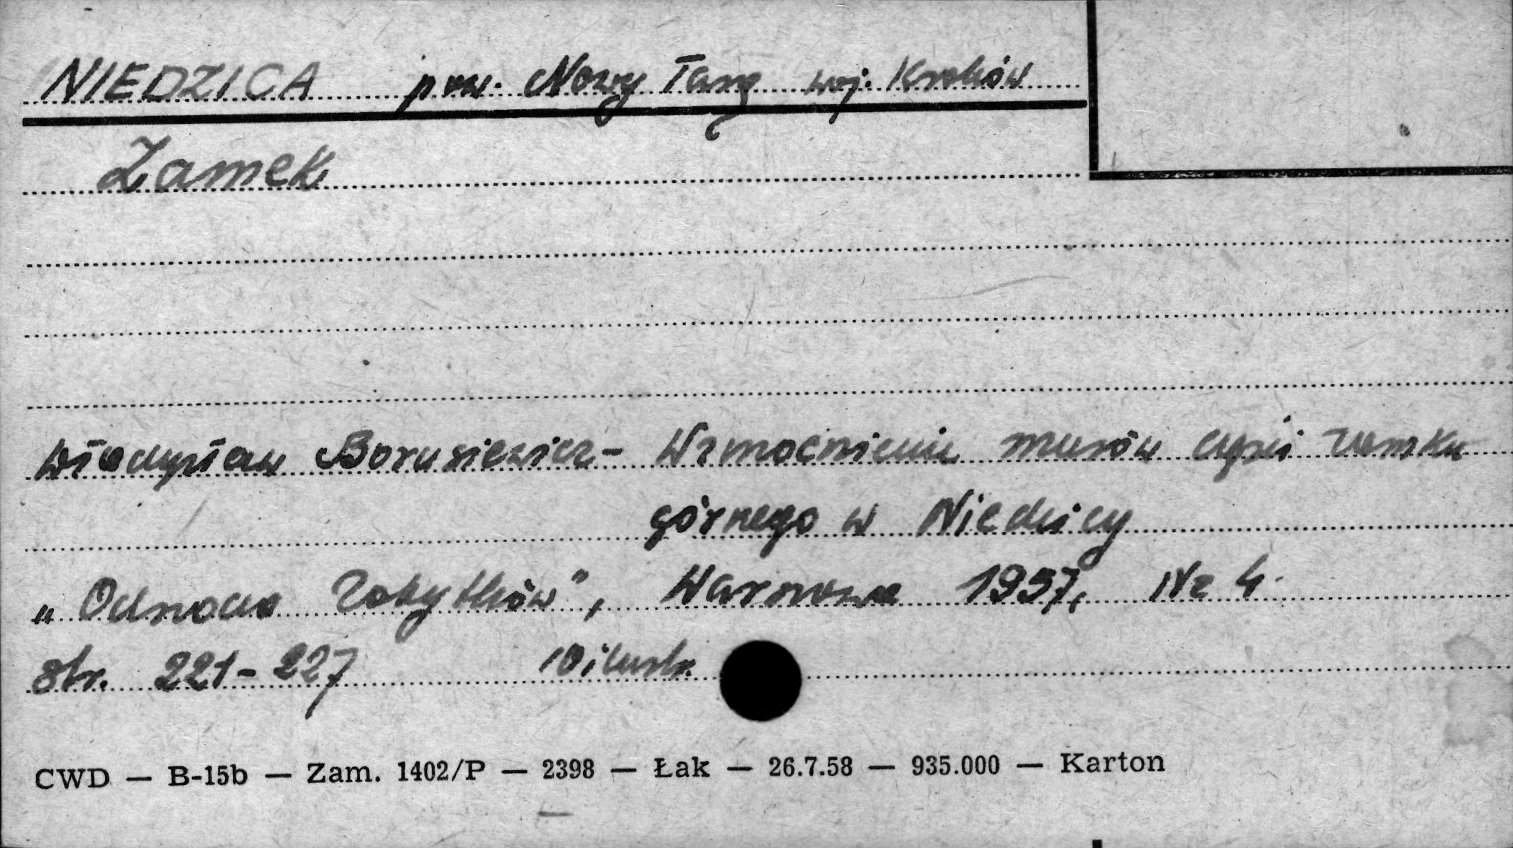 NIEDZICA pow. Nowy Targ woj. Kraków
Zamek
Władysław Borusiewicz - Wzmocnienie murów części zamku
górnego w Niedzicy
„Ochrona Zabytków", Warszawa 1957, Nr 4.
str. 221-227 10 ilustr.
CWD — B-15b — Zam. 1402/P — 2398 — Łak — 26.7.58 — 935.000 — Karton